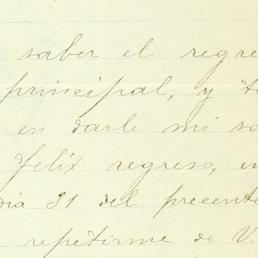 saber el regre
principal, y t
en darle mi sa
feliz regreso, en
dia 31 del presente
repetirme de V.